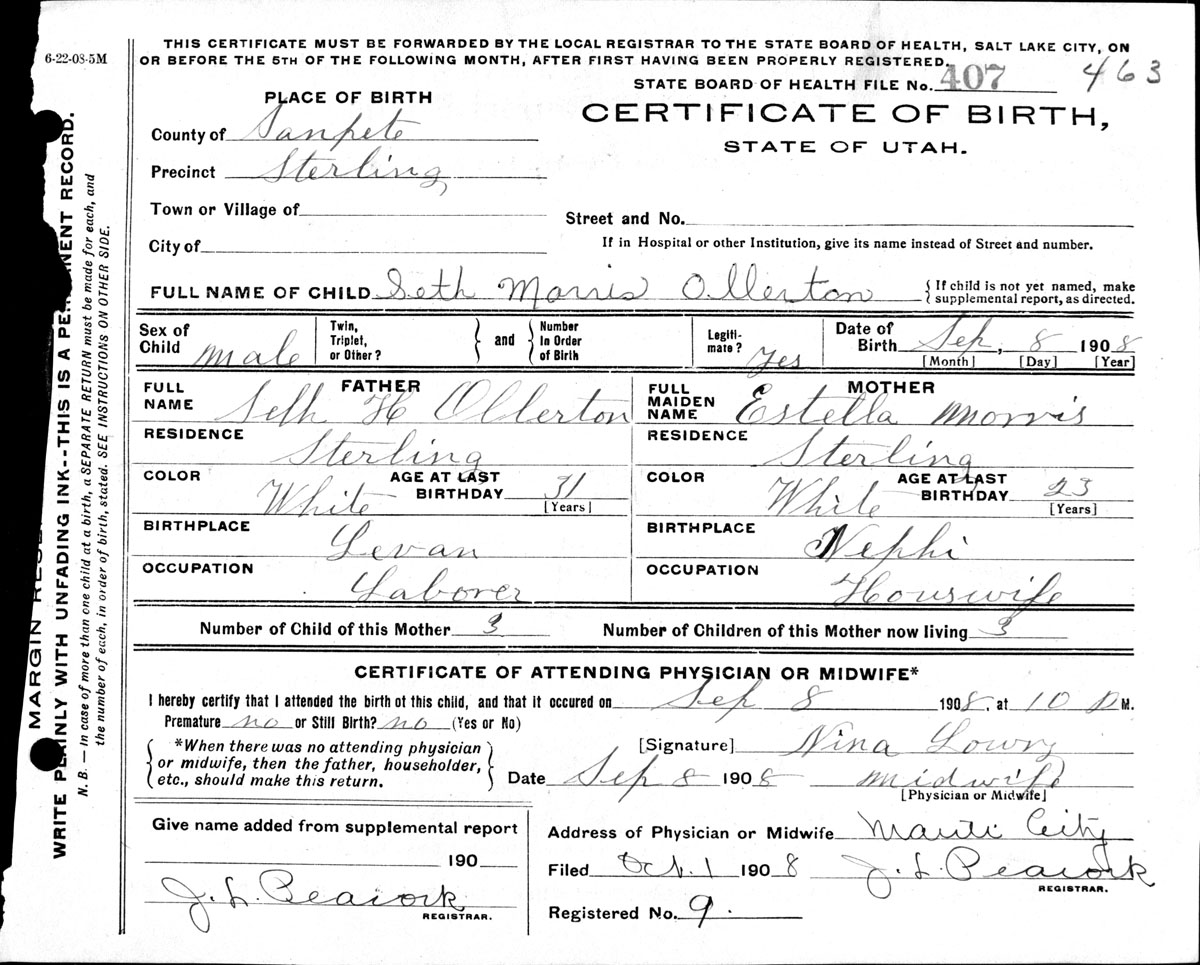 6-22-08-5M
THIS CERTIFICATE MUST BE FORWARDED BY THE LOCAL REGISTRAR TO THE STATE BOARD OF HEALTH, SALT LAKE CITY, ON
OR BEFORE THE 5TH OF THE FOLLOWING MONTH, AFTER FIRST HAVING BEEN PROPERLY REGISTERED.
STATE BOARD OF HEALTH FILE No. 407 463
PLACE OF BIRTH
CERTIFICATE OF BIRTH,
STATE OF UTAH.
County of Sanpete
Precinct Sterling
Town or Village of
Street and No.
City of
If in Hospital or other Institution, give its name instead of Street and number.
FULL NAME OF CHILD Seth Morris Ollerton { If child is not yet named, make
supplemental report, as directed.
Sex of Child Male Twin, Triplet, or Other? } and { Number In Order of Birth Legiti-mate? Yes Date of Birth Sep, 8 1908
[Month] [Day] [Year]
FATHER MOTHER
FULL NAME Seth H Ollerton FULL MAIDEN NAME Estella Morris
RESIDENCE Sterling RESIDENCE Sterling
COLOR White AGE AT LAST BIRTHDAY 31 [Years] COLOR White AGE AT LAST BIRTHDAY 23 [Years]
BIRTHPLACE Levan BIRTHPLACE Nephi
OCCUPATION Laborer OCCUPATION Houswife
Number of Child of this Mother 3 Number of Children of this Mother now living 3
CERTIFICATE OF ATTENDING PHYSICIAN OR MIDWIFE*
I hereby certify that I attended the birth of this child, and that it occured on Sep 8 1908, at 10 P M.
Premature no or Still Birth? no (Yes or No)
{ *When there was no attending physician
or midwife, then the father, householder,
etc., should make this return. }
[Signature] Nina Lowry
Date Sep 8 1908 Midwife
[Physician or Midwife]
Give name added from supplemental report
190
J. L. Peacock
REGISTRAR.
Address of Physician or Midwife Manti City
Filed Oct. 1 1908 J. L. Peacock
REGISTRAR.
Registered No. 9.
MARGIN
WRITE PLAINLY WITH UNFADING INK--THIS IS A PERMANENT RECORD.
N. B. — In case of more than one child at a birth, a SEPARATE RETURN must be made for each, and
the number of each, in order of birth, stated. SEE INSTRUCTIONS ON OTHER SIDE.